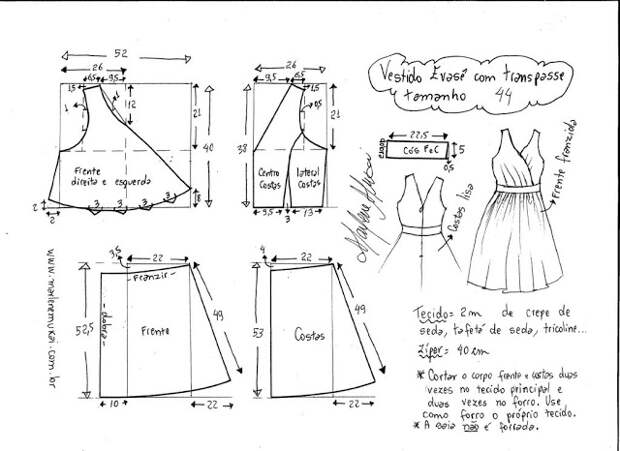 Vestido Evasê com transpasse
tamanho 44
52
26
6,5
9,5
1,5
1
12
21
40
Frente
direita e esquerda
3
3
3
3
8
2
2
26
9,5
6,5
0,5
21
38
Centro
Costas
lateral
Costas
9,5
3
13
Marlene Mukai
22,5
CÓS F e C
5
0,5
Costas lisa
Frente franzida
www.marlenemukai.com.br
3,5
22
- Franzir -
52,5
- dobra -
Frente
49
10
22
4
22
53
Costas
49
22
Tecido= 2m de crepe de
seda, tafetá de seda, tricoline...
Zíper= 40 cm
* Cortar o corpo frente e costas duas
vezes no tecido principal e
duas vezes no forro. Use
como forro o próprio tecido.
* A saia não é forrada.